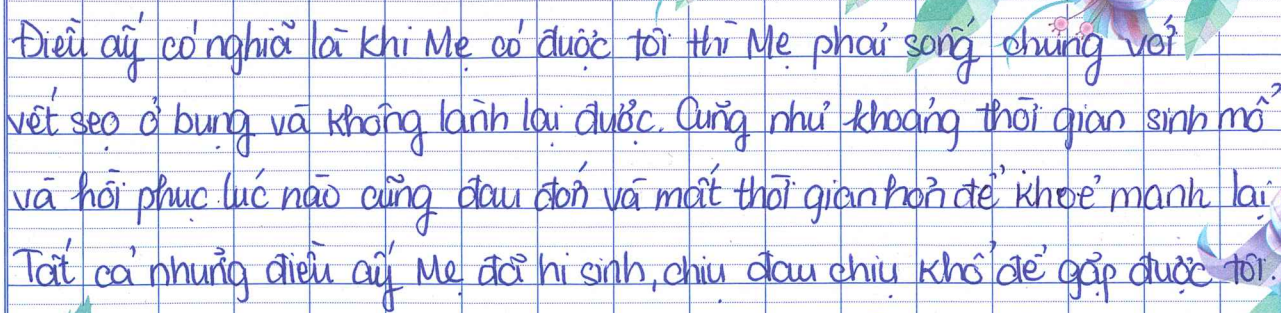 Điều ấy có nghĩa là khi Mẹ có được tôi thì Mẹ phải sống chung với
vết sẹo ở bụng và không lành lại được. Cũng như khoảng thời gian sinh mổ
và hồi phục lúc nào cũng đau đớn và mất thời gian hơn để khoẻ mạnh lại
Tất cả những điều ấy Mẹ đã hi sinh, chịu đau chịu khổ để gặp được tôi.